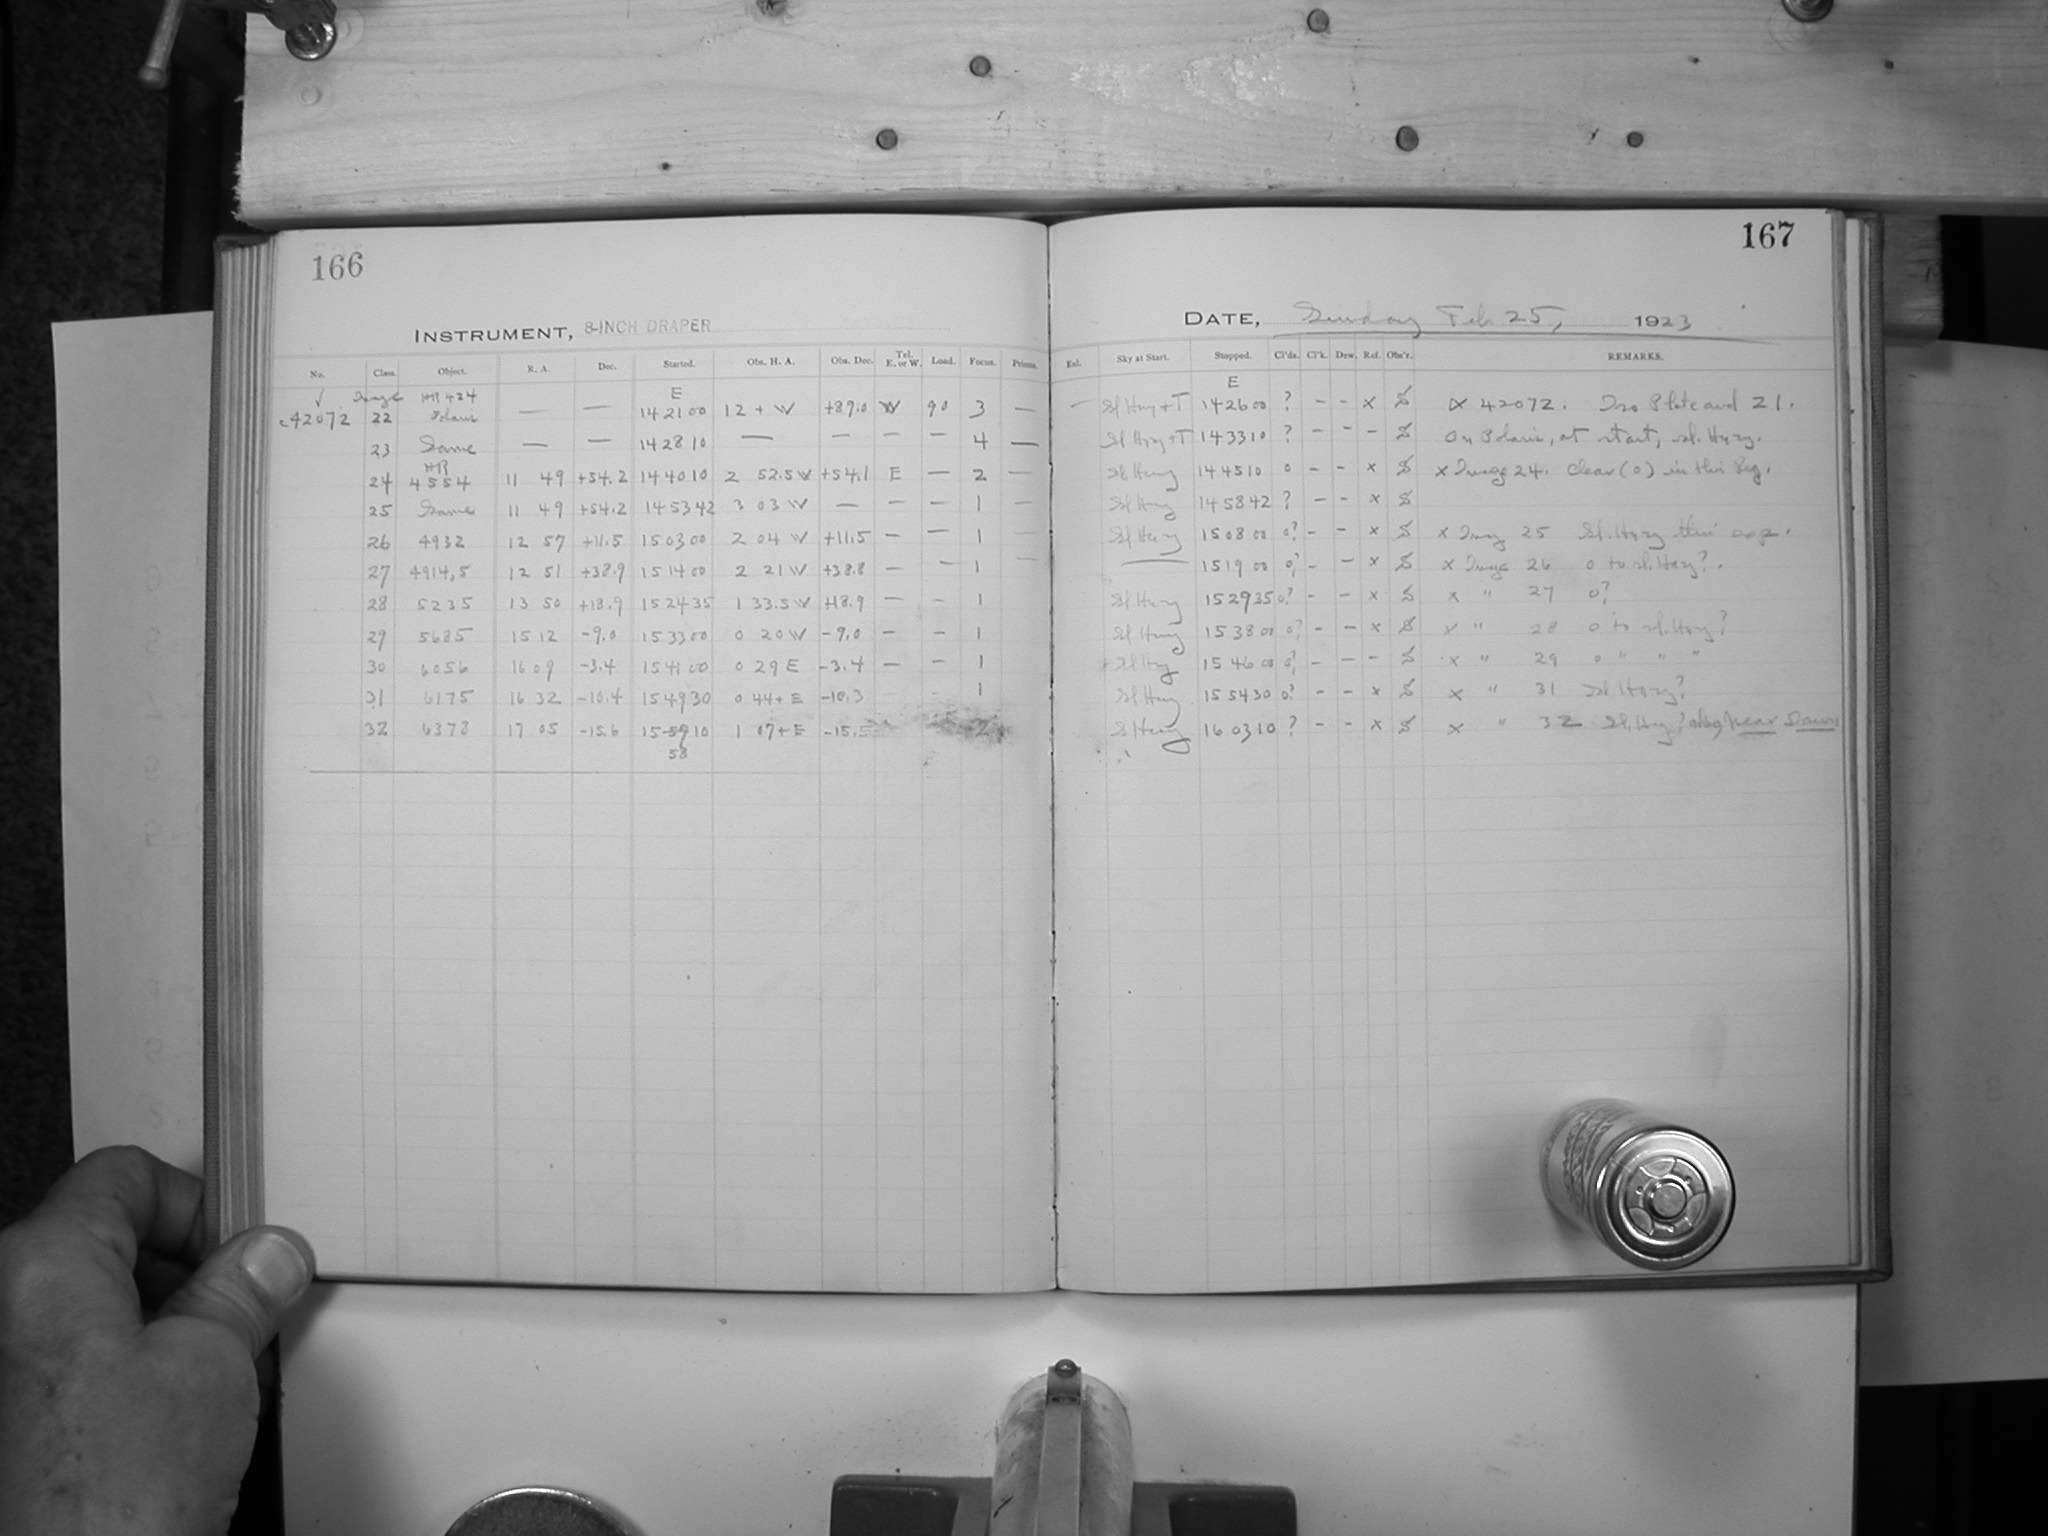 166
INSTRUMENT, 8-INCH DRAPER
No. Class. Object. R. A. Dec. Started. Obs. H. A. Obs. Dec. Tel. E. or W. Load. Focus. Prisms.
✓ Image HR 424 E
c42072 22 Polaris — — 14 21 00 12 + W +89.0 W 90 3 —
23 Same — — 14 28 10 — — — — 4 —
HR
24 4554 11 49 +54.2 14 40 10 2 52.5 W +54.1 E — 2 —
25 Same 11 49 +54.2 14 53 42 3 03 W — — — 1 —
26 4932 12 57 +11.5 15 03 00 2 04 W +11.5 — — 1 —
27 4914,5 12 51 +38.9 15 14 00 2 21 W +38.8 — — 1 —
28 5235 13 50 +18.9 15 24 35 1 33.5 W +18.9 — — 1
29 5685 15 12 -9.0 15 33 00 0 20 W -9.0 — — 1
30 6056 16 09 -3.4 15 41 00 0 29 E -3.4 — — 1
31 6175 16 32 -10.4 15 49 30 0 44+ E -10.3 1
32 6378 17 05 -15.6 15 59 10 1 07+ E -15.5 2
58
167
DATE, Sunday Feb. 25, 1923
Exl. Sky at Start. Stopped. Cl'ds. Cl'k. Dew. Ref. Obs'r. REMARKS.
E
— Sl Hazy + T 14 26 00 ? — — x S x 42072. Iso Plate and 21.
Sl Hazy + T 14 33 10 ? — — — S On Polaris, at start, sl. Hazy.
Sl Hazy 14 45 10 0 — — x S x Image 24. Clear (0) in this Reg.
Sl Hazy 14 58 42 ? — — x S
Sl Hazy 15 08 00 0? — — x S x Image 25 Sl. Hazy this exp.
— 15 19 00 0? — — x S x Image 26 0 to sl. Hazy?.
Sl Hazy 15 29 35 0? — — x S x " 27 0?
Sl Hazy 15 38 00 0? — — x S x " 28 0 to sl. Hazy?
Sl Hazy 15 46 00 0? — — — S x " 29 0 " " "
Sl Hazy 15 54 30 0? — — x S x " 31 Sl Hazy?
Sl Hazy 16 03 10 ? — — x S x " 32 Sl. Hazy? near Dawn